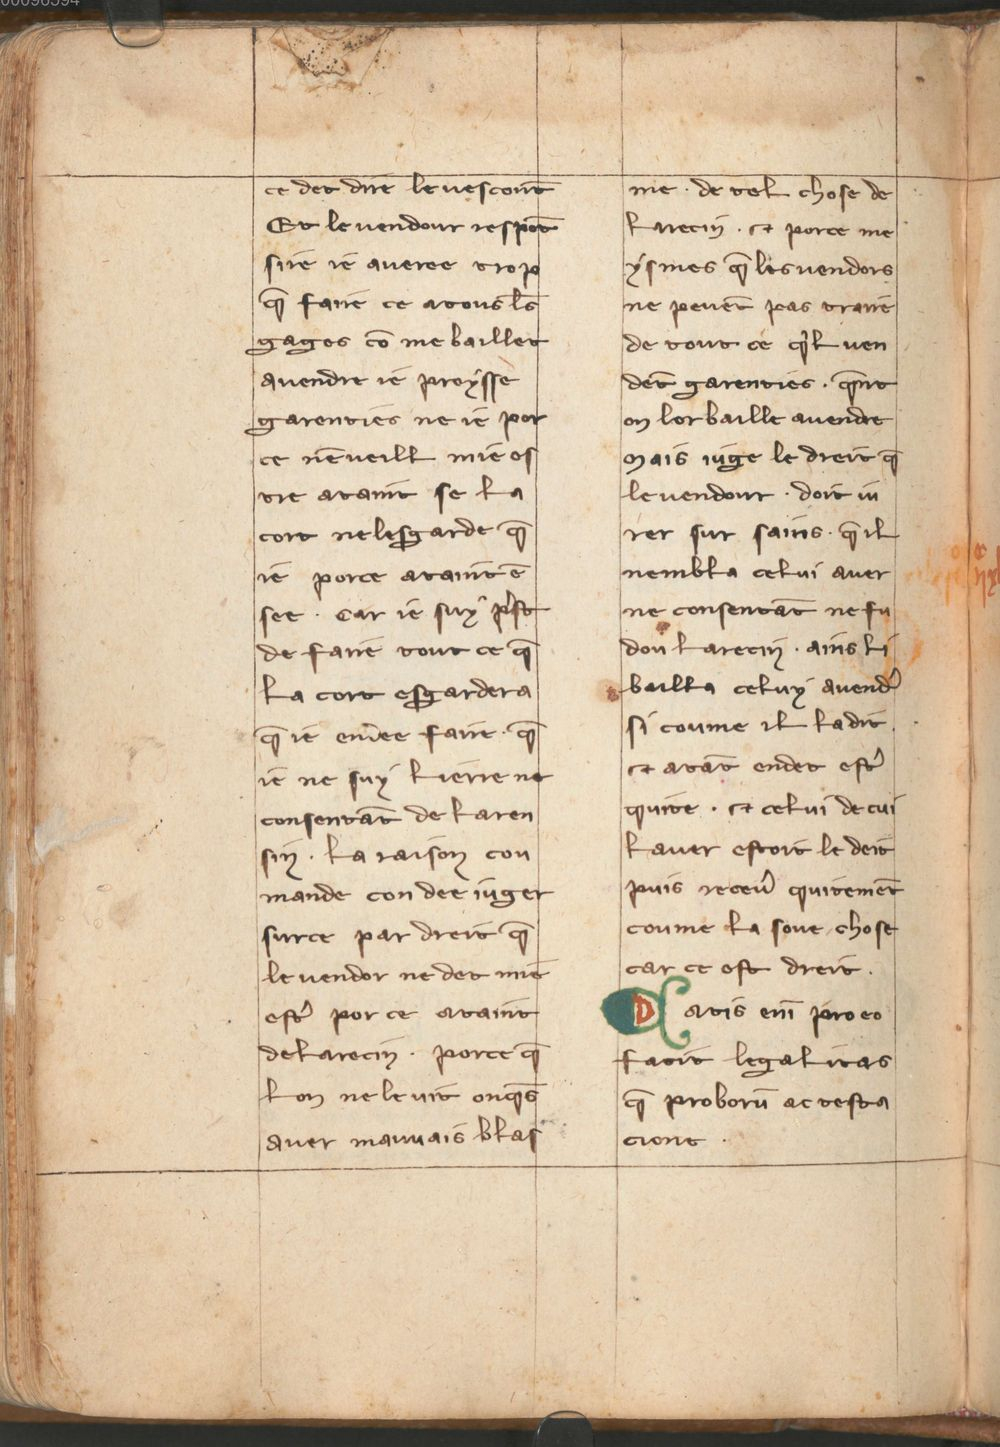 ce det dire le uescont
Et le uendour respōt
sire ie aueree trop
q̄ faire ce atous l̄s
gages cō me baillet
auendre ie proysse
garenties ne ie por
ce nēueill mie es
tre ataint se la
cort ne lesgarde q̄
ie por ce ataint ē
see . Car ie suy p̄st
de faire tout ce q̄
la cort esgardera
q̄ ie en dee faire . q̄
ie ne suy lierre ne
consentāt de laren
sin . la raison cou
mande con dee iuger
sur ce par dreit q̄
le uendor ne det mie
estr̄ por ce ataint
de larecin . porce q̄
lon ne le uit onq̄s
auer mauuais blas
me . de tel chose de
larecin . et porce me
ysmes q̄ les uendors
ne peuēt pas traire
de tout ce q̄l uen
dēt garenties . q̄nt
on lor baille auendre
Mais iuge le dreit q̄
le uendour . doit iu
rer sur sains . q̄ il
nembla celui auer
ne consentāt ne fu
dou larecin . ains li
bailla celuy auendr̄
si coume il la dit .
et atāt endet estr̄
quite . et celui de cui
lauer estoit le deit
puis receur̄ quitemēt
coume la soue chose
car ce est dreit .
D Satis eni pro eo
facit legalitas
q̄ proborū ac testa
cione .